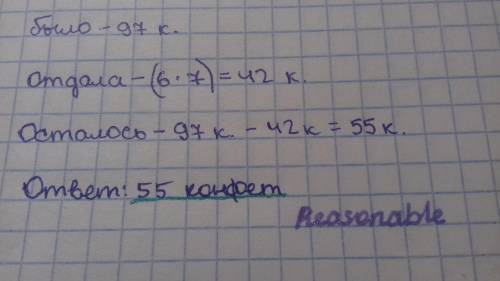 было - 97 к.
отдала - (6 · 7) = 42 к.
Осталось - 97 к. - 42 к = 55 к.
Ответ: 55 конфет
Reasonable